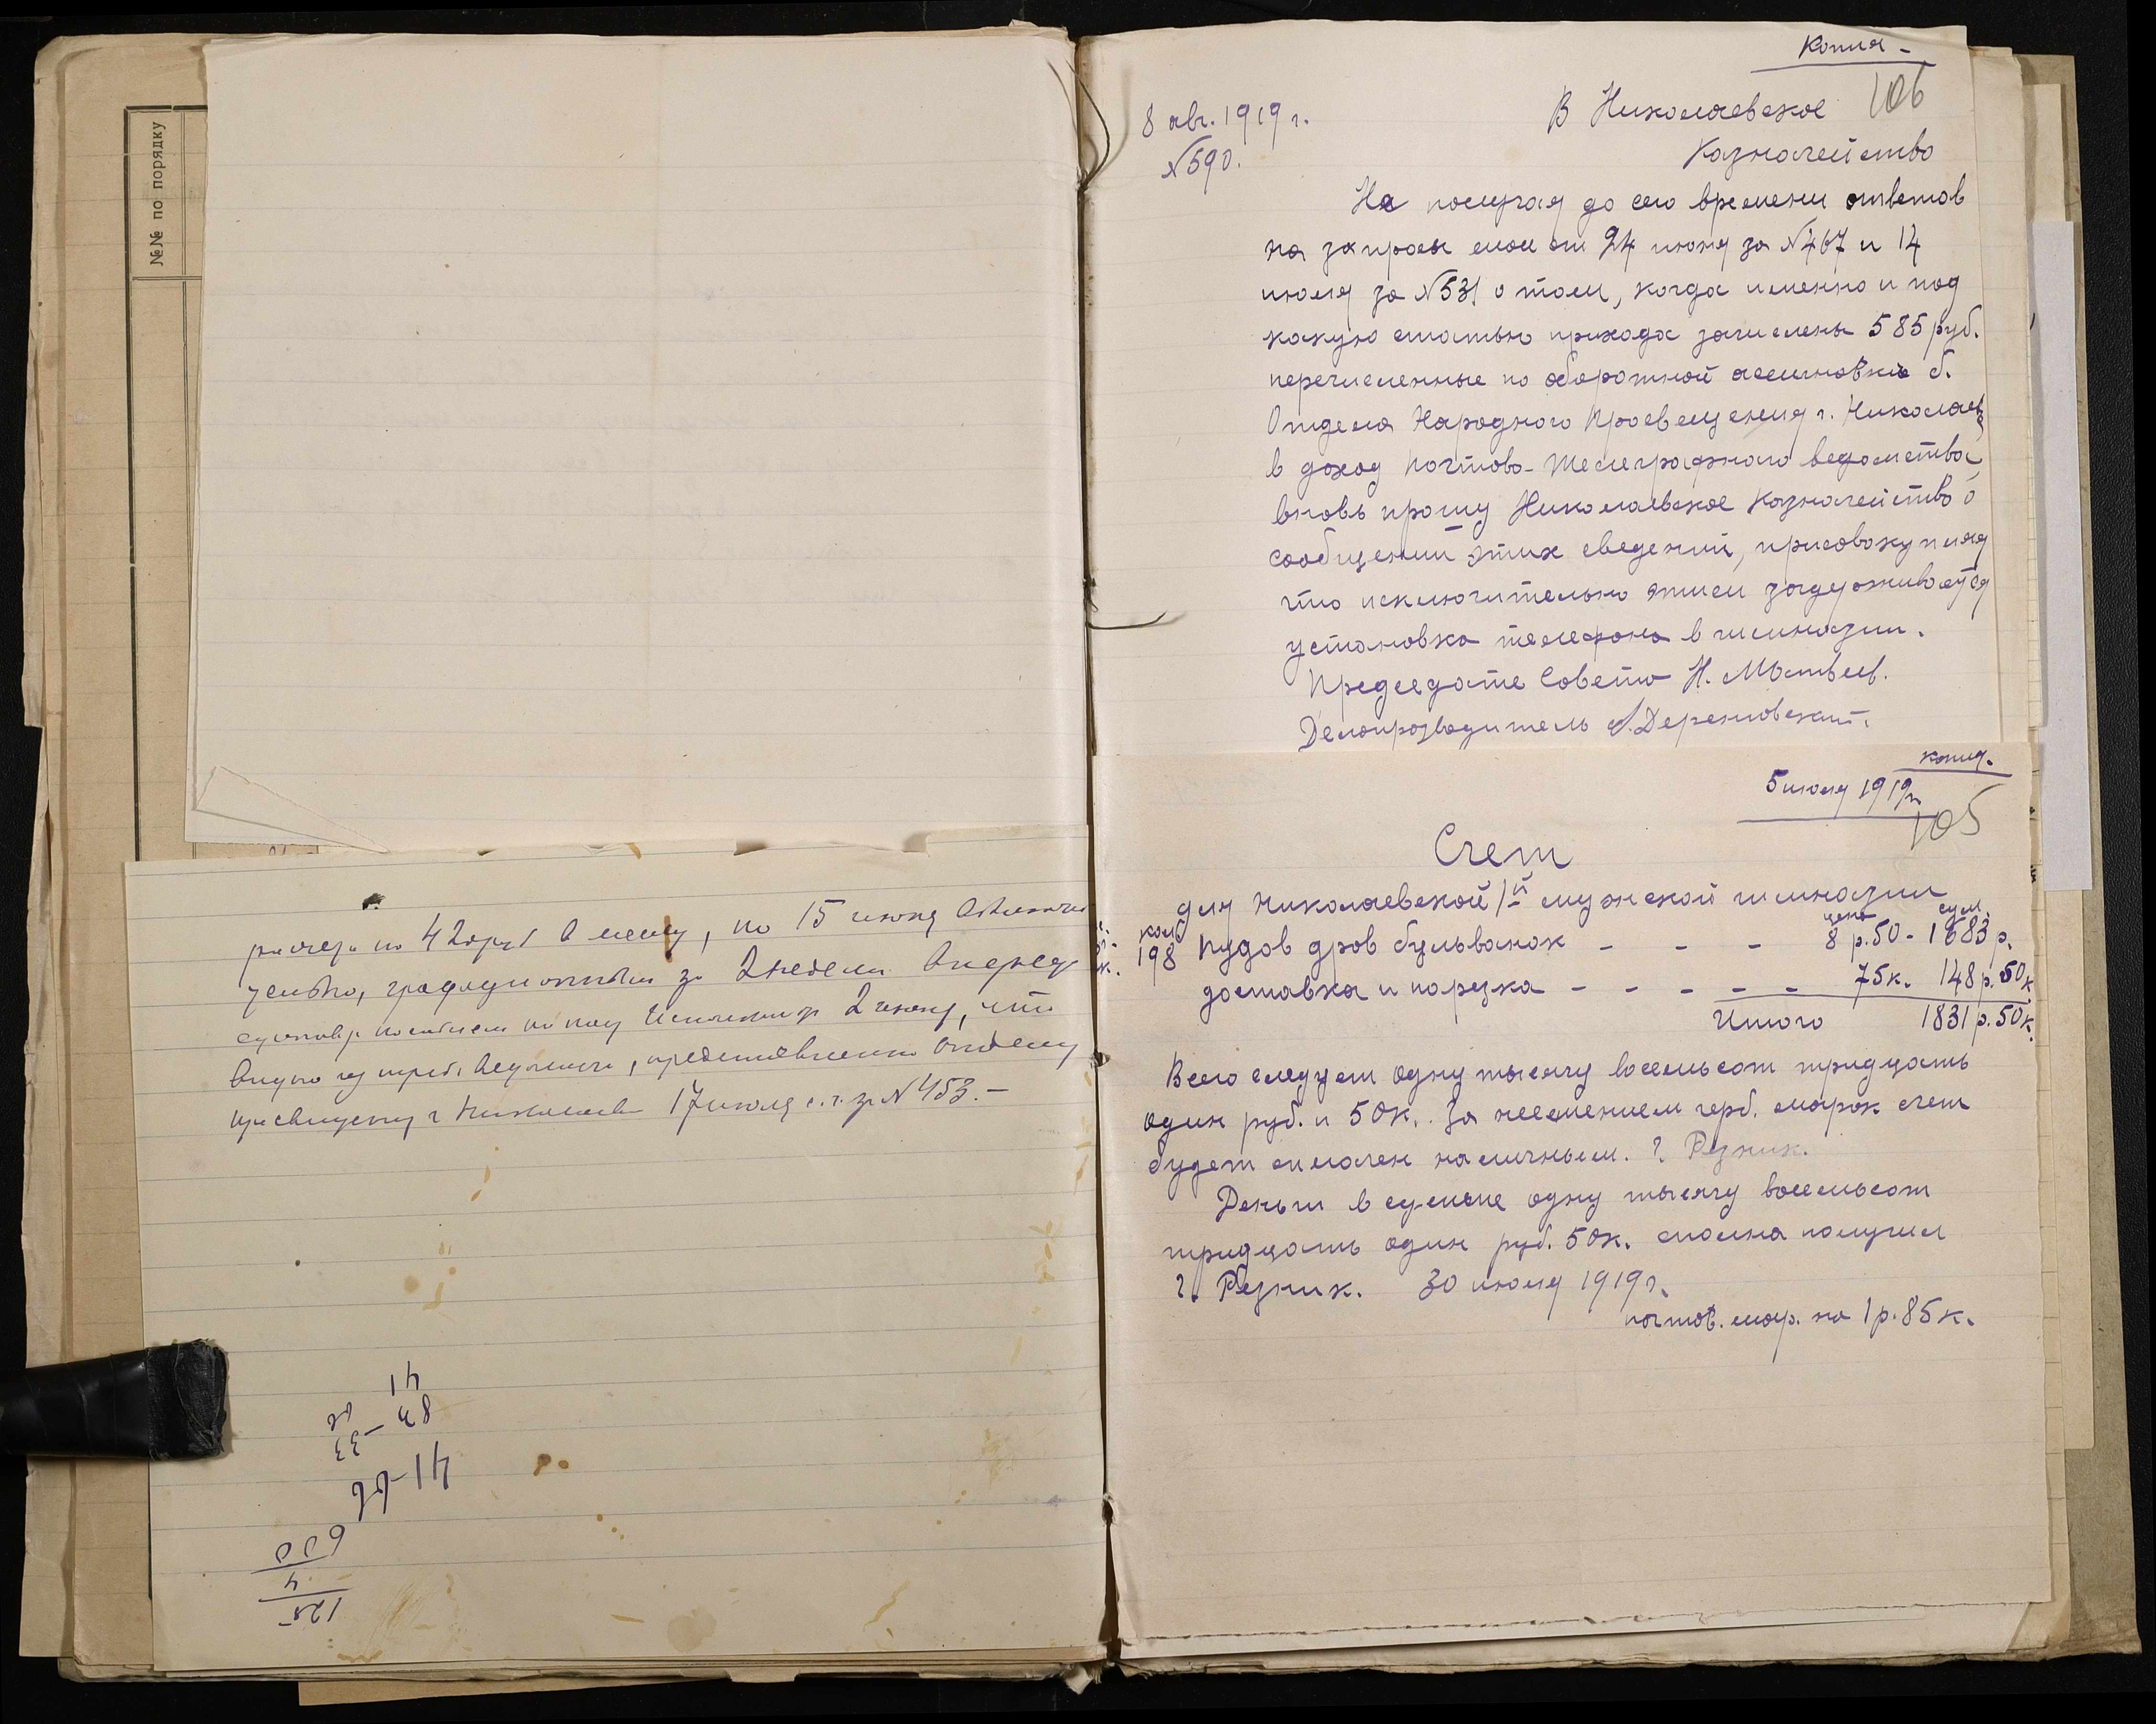 №№ по порядку
расчера по 420 руб в месяц, по 15 июня включи
тельно,
2 июня, что
видно из треб. ведомости, представленно Отделу
просвещения г Николаева 17 июля с.г. за № 453.-
41
83
33
41-66
600
4
125
Копия -
106
8 авг. 1919 г.
№ 590.
В Николаевское
Казначейство
Не получая до сего времени ответов
на запросы мои от 24 июня за № 467 и 14
июля за № 531 о том, когда именно и под
какую статью прихода зачислены 585 руб.
перечисленные по оборотной ассигновке б.
Отдела Народного Просвещения г. Николаева
в доход почтово-телеграфного ведомства,
вновь прошу Николаевское Казначейство о
сообщении этих сведений, присовокупляя
что исключительно этим задерживается
установка телефона в гимназии.
Председате Совета Н. Матвеев.
Делопроизводитель
копия.
5 июля 1919 г.
105
Счет
для Николаевской 1й мужской гимназии
кол. цена сум.
198 пудов дров бульванок - - - 8 р. 50 - 1683 р.
доставка и порезка - - - - - 75 к. 148 р. 50 к.
Итого 1831 р. 50 к.
Всего следует одну тысячу восемьсот тридцать
один руб. и 50 к. За неимением герб. марок счет
будет оплачен наличными. Г. Резник.
Деньги в сумме одну тысячу восемьсот
тридцать один руб. 50 к. сполна получил
Г. Резник. 30 июля 1919 г.
почтов. мар. на 1 р. 85 к.